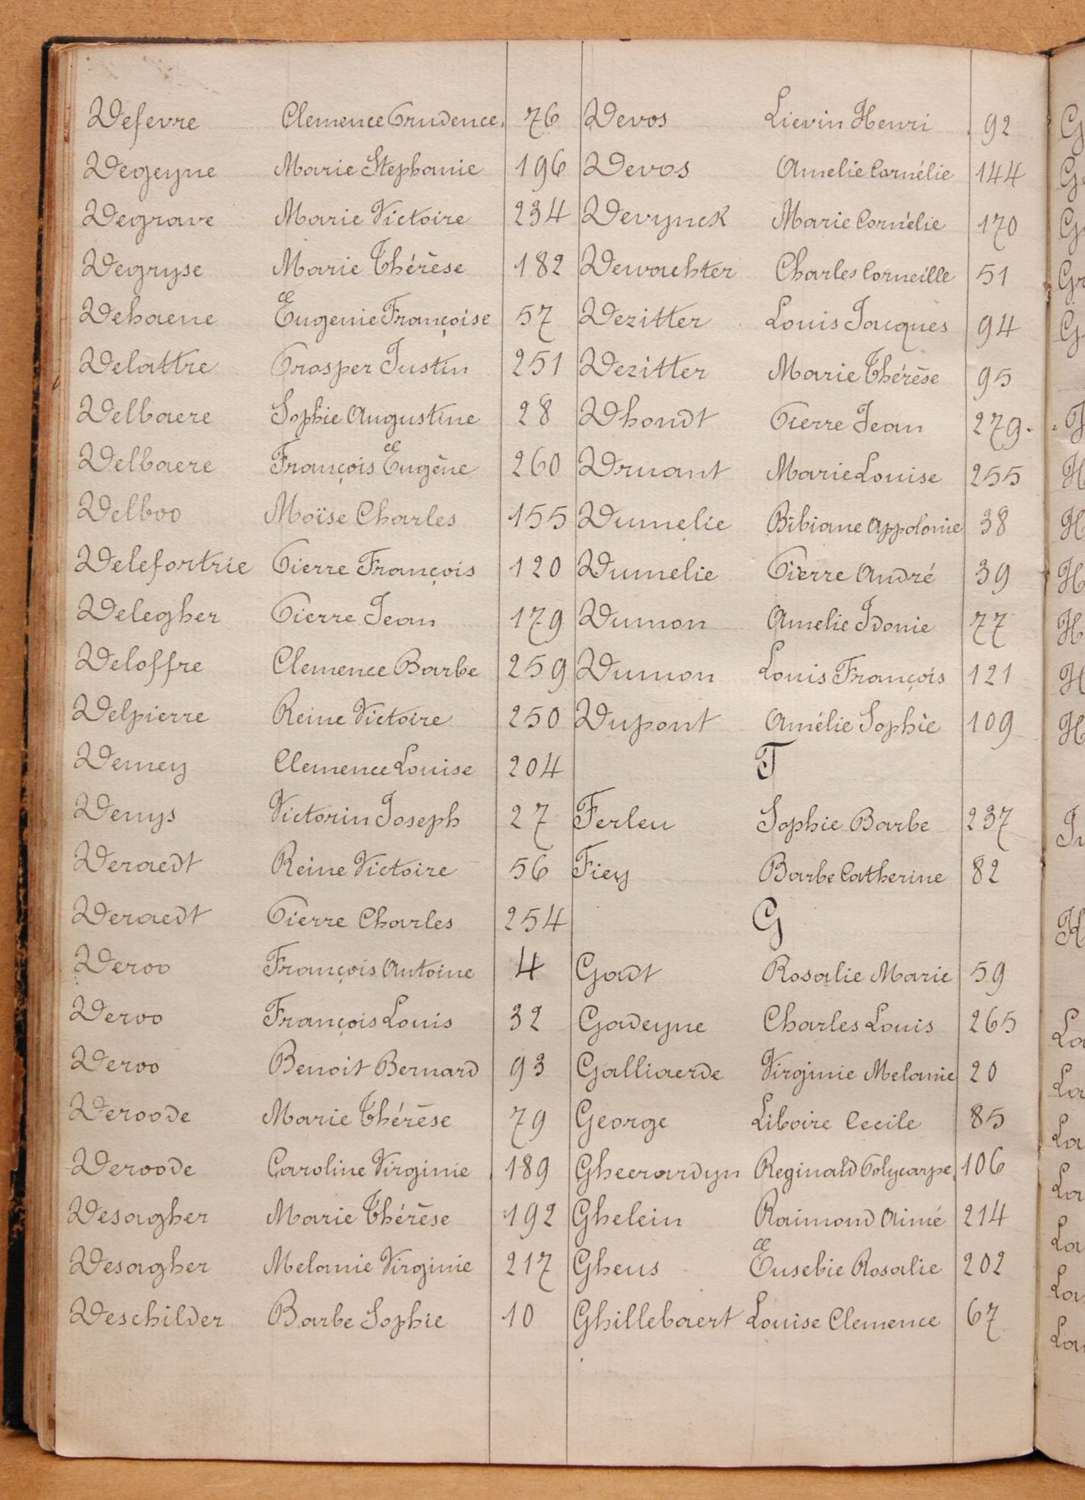 Defevre Clemence Prudence. 76
Degeyne Marie Stephanie 196
Degrave Marie Victoire 234
Degryse Marie Thérèse 182
Dehaene Eugenie Françoise 57
Delattre Prosper Justin 251
Delbaere Sophie Augustine 28
Delbaere François Eugène 260
Delboo Moïse Charles 155
Delefortrie Pierre François 120
Delegher Pierre Jean 179
Deloffre Clemence Barbe 259
Delpierre Reine Victoire 250
Demey Clemence Louise 204
Denys Victorin Joseph 27
Deraedt Reine Victoire 56
Deraedt Pierre Charles 254
Deroo François Antoine 4
Deroo François Louis 32
Deroo Benoit Bernard 93
Deroode Marie Thérèse 79
Deroode Caroline Virginie 189
Desagher Marie Thérèse 192
Desagher Melanie Virginie 217
Deschilder Barbe Sophie 10
Devos Lievin Henri 92
Devos Amelie Cornélie 144
Devynck Marie Cornélie 170
Dewachter Charles Corneille 51
Dezitter Louis Jacques 94
Dezitter Marie Thérèse 95
Dhondt Pierre Jean 279
Druant Marie Louise 255
Dumelie Bibiane Appolonie 38
Dumelie Pierre André 39
Dumon Amelie Idonie 77
Dumon Louis François 121
Dupont Amélie Sophie 109
F
Ferleu Sophie Barbe 237
Fiey Barbe Catherine 82
G
Gadt Rosalie Marie 59
Gadeyne Charles Louis 265
Galliaerde Virginie Melanie 20
George Liboire Cecile 85
Gheerardyn Reginald Polycarpe 106
Ghelein Raimond Aimé 214
Gheus Eusebie Rosalie 202
Ghillebaert Louise Clemence 67